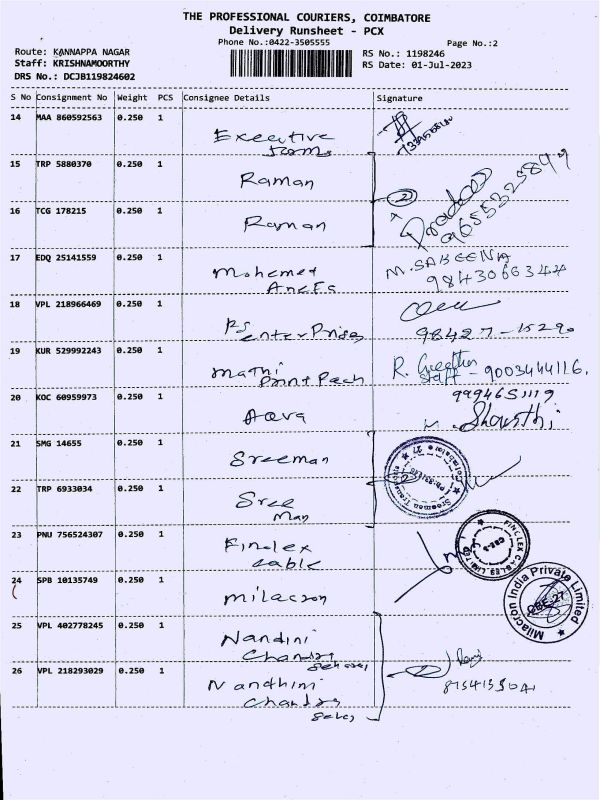 THE PROFESSIONAL COURIERS, COIMBATORE
Delivery Runsheet - PCX
Phone No.:0422-3505555
Page No.:2
Route: KANNAPPA NAGAR
RS No.: 1198246
Staff: KRISHNAMOORTHY
RS Date: 01-Jul-2023
DRS No.: DCJB119824602
S No Consignment No Weight PCS Consignee Details Signature
14 MAA 860592563 0.250 1
Executive
15 TRP 5880370 0.250 1
Raman
2
16 TCG 178215 0.250 1
Raman
Pradeep
17 EDQ 25141559 0.250 1
Mohemet
M. SABEENA
9843066344
18 VPL 218966469 0.250 1
Ps
enterprises
98427-15290
19 KUR 529992243 0.250 1
Mathi
Print Pack
R.
staff - 9003444116.
20 KOC 60959973 0.250 1
9994651119
21 SMG 14655 0.250 1
Sreeman
22 TRP 6933034 0.250 1
Sree
Man
23 PNU 756524307 0.250 1
Finolex
cable
FINOLEX CABLES LIMITED
24 SPB 10135749 0.250 1
Milacron
Milacron India Private Limited
CBE-27
25 VPL 402778245 0.250 1
Nandini
Chandra
Sekaran
26 VPL 218293029 0.250 1
Nandhini
Chandra